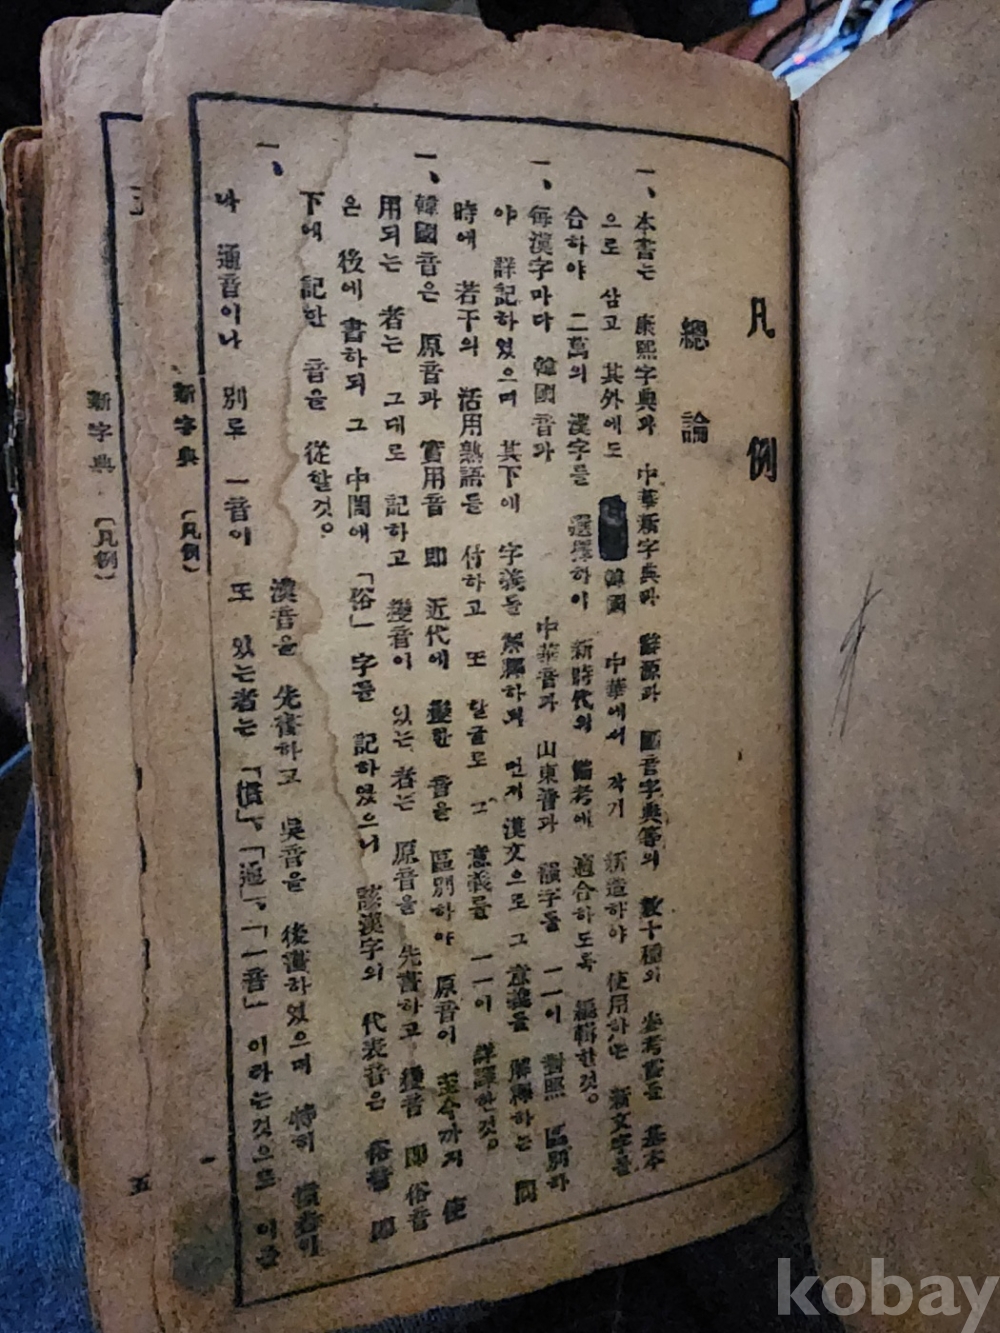 凡例
總論
一、本書는 康熙字典과 中華新字典과 辭源과 國音字典等의 數十種의 參考書를 基本
으로 삼고 其外에도 韓國 中華에서 各기 新造하야 使用하는 新文字를
合하야 二萬의 漢字를 選擇하이 新時代의 備考에 適合하도록 編輯한것。
一、每漢字마다 韓國音과 中華音과 山東音과 漢字를 一一이 對照 區別하
야 詳記하였으며 其下에 字義를 解釋하되 먼저 漢文으로 그 意義를 解釋하는 同
時에 若干의 活用熟語를 付하고 또 한글로 그 意義를 一一이 詳譯한것。
一、韓國音은 原音과 實用音 即 近代에 變한 音을 區別하야 原音이 至今까지 使
用되는 者는 그대로 記하고 變音이 있는 者는 原音을 先書하고 變音 即俗音
은 後에 書하되 그 中間에 「俗」字를 記하였으니 該漢字의 代表音은 俗音 即
下에 記한 音을 從할것。
一、漢音을 先書하고 吳音을 後書하였으며 特히 慣音이
나 通音이나 別로 一音이 또 있는者는 「慣」、「通」、「一音」 이라는것으로 이를
新字典 (凡例)
新字典 (凡例)
五